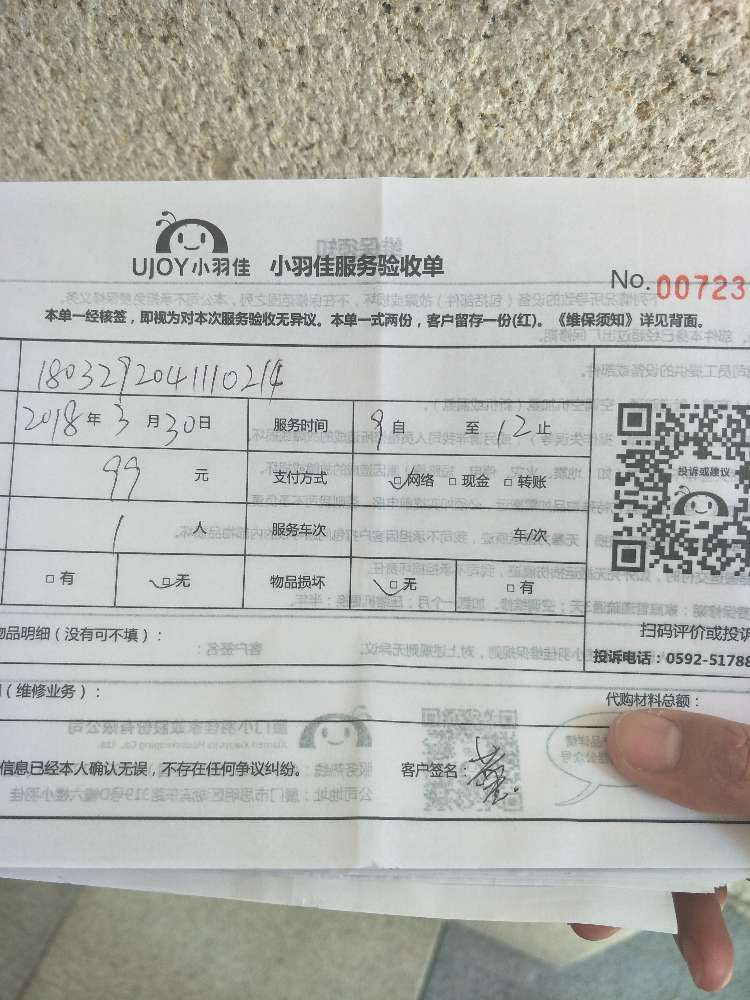 UJOY小羽佳 小羽佳服务验收单
No. 00723
本单一经核签，即视为对本次服务验收无异议。本单一式两份，客户留存一份(红)。《维保须知》详见背面。
1803292041110214
2018年3月30日 服务时间 9自 至12止
99元 支付方式 □网络 □现金 □转账
1人 服务车次 车/次
□有 □无 物品损坏 □无 □有
投诉或建议
扫码评价或投诉
投诉电话：0592-51788
物品明细（没有可不填）：
（维修业务）： 代购材料总额：
信息已经本人确认无误，不存在任何争议纠纷。 客户签名：